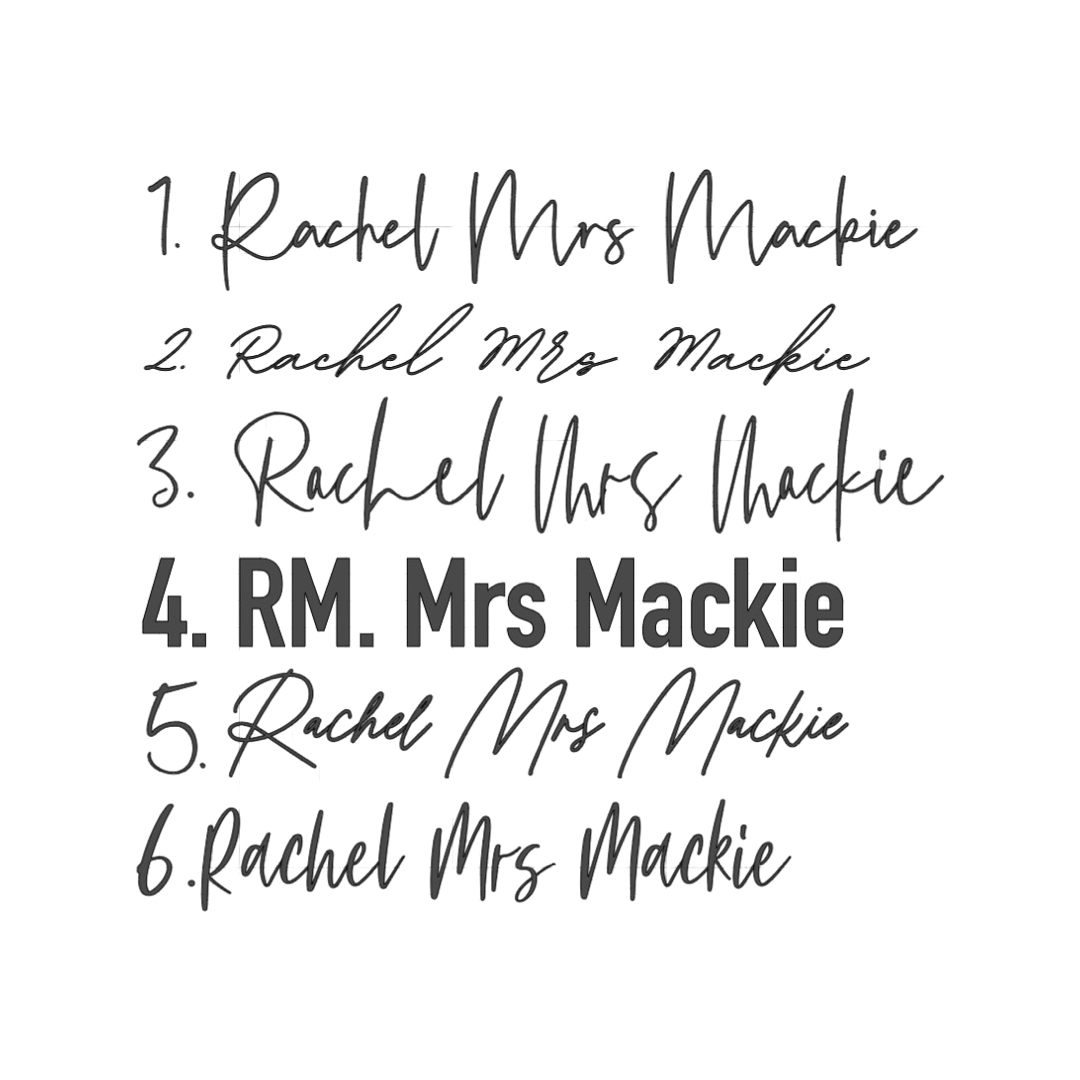 1. Rachel Mrs Mackie
2. Rachel Mrs Mackie
3. Rachel Mrs Mackie
4. RM. Mrs Mackie
5. Rachel Mrs Mackie
6. Rachel Mrs Mackie